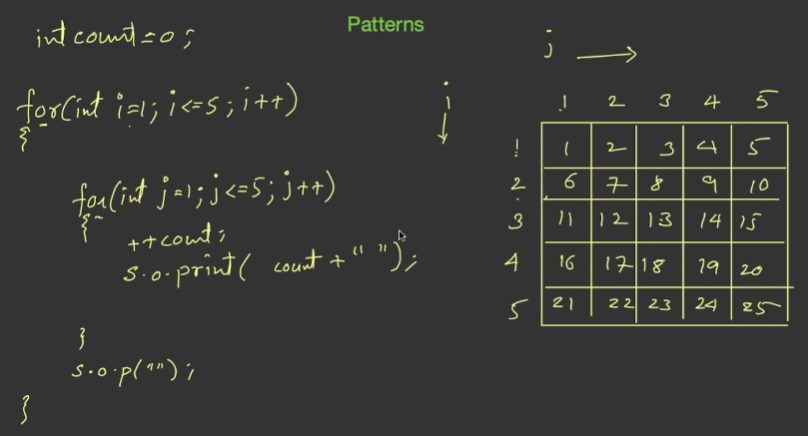 Patterns
int count=0;
for(int i=1; i<=5; i++)
{
for(int j=1; j<=5; j++)
{
++count;
s.o.print( count + " ");
}
s.o.p("");
}
j
i
1 2 3 4 5
1 1 2 3 4 5
2 6 7 8 9 10
3 11 12 13 14 15
4 16 17 18 19 20
5 21 22 23 24 25